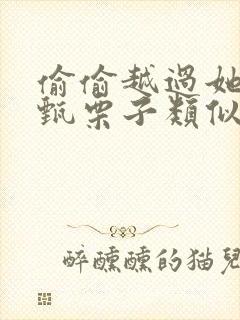 偷偷越過她
甄栗子類似
醉醺醺的猫兒